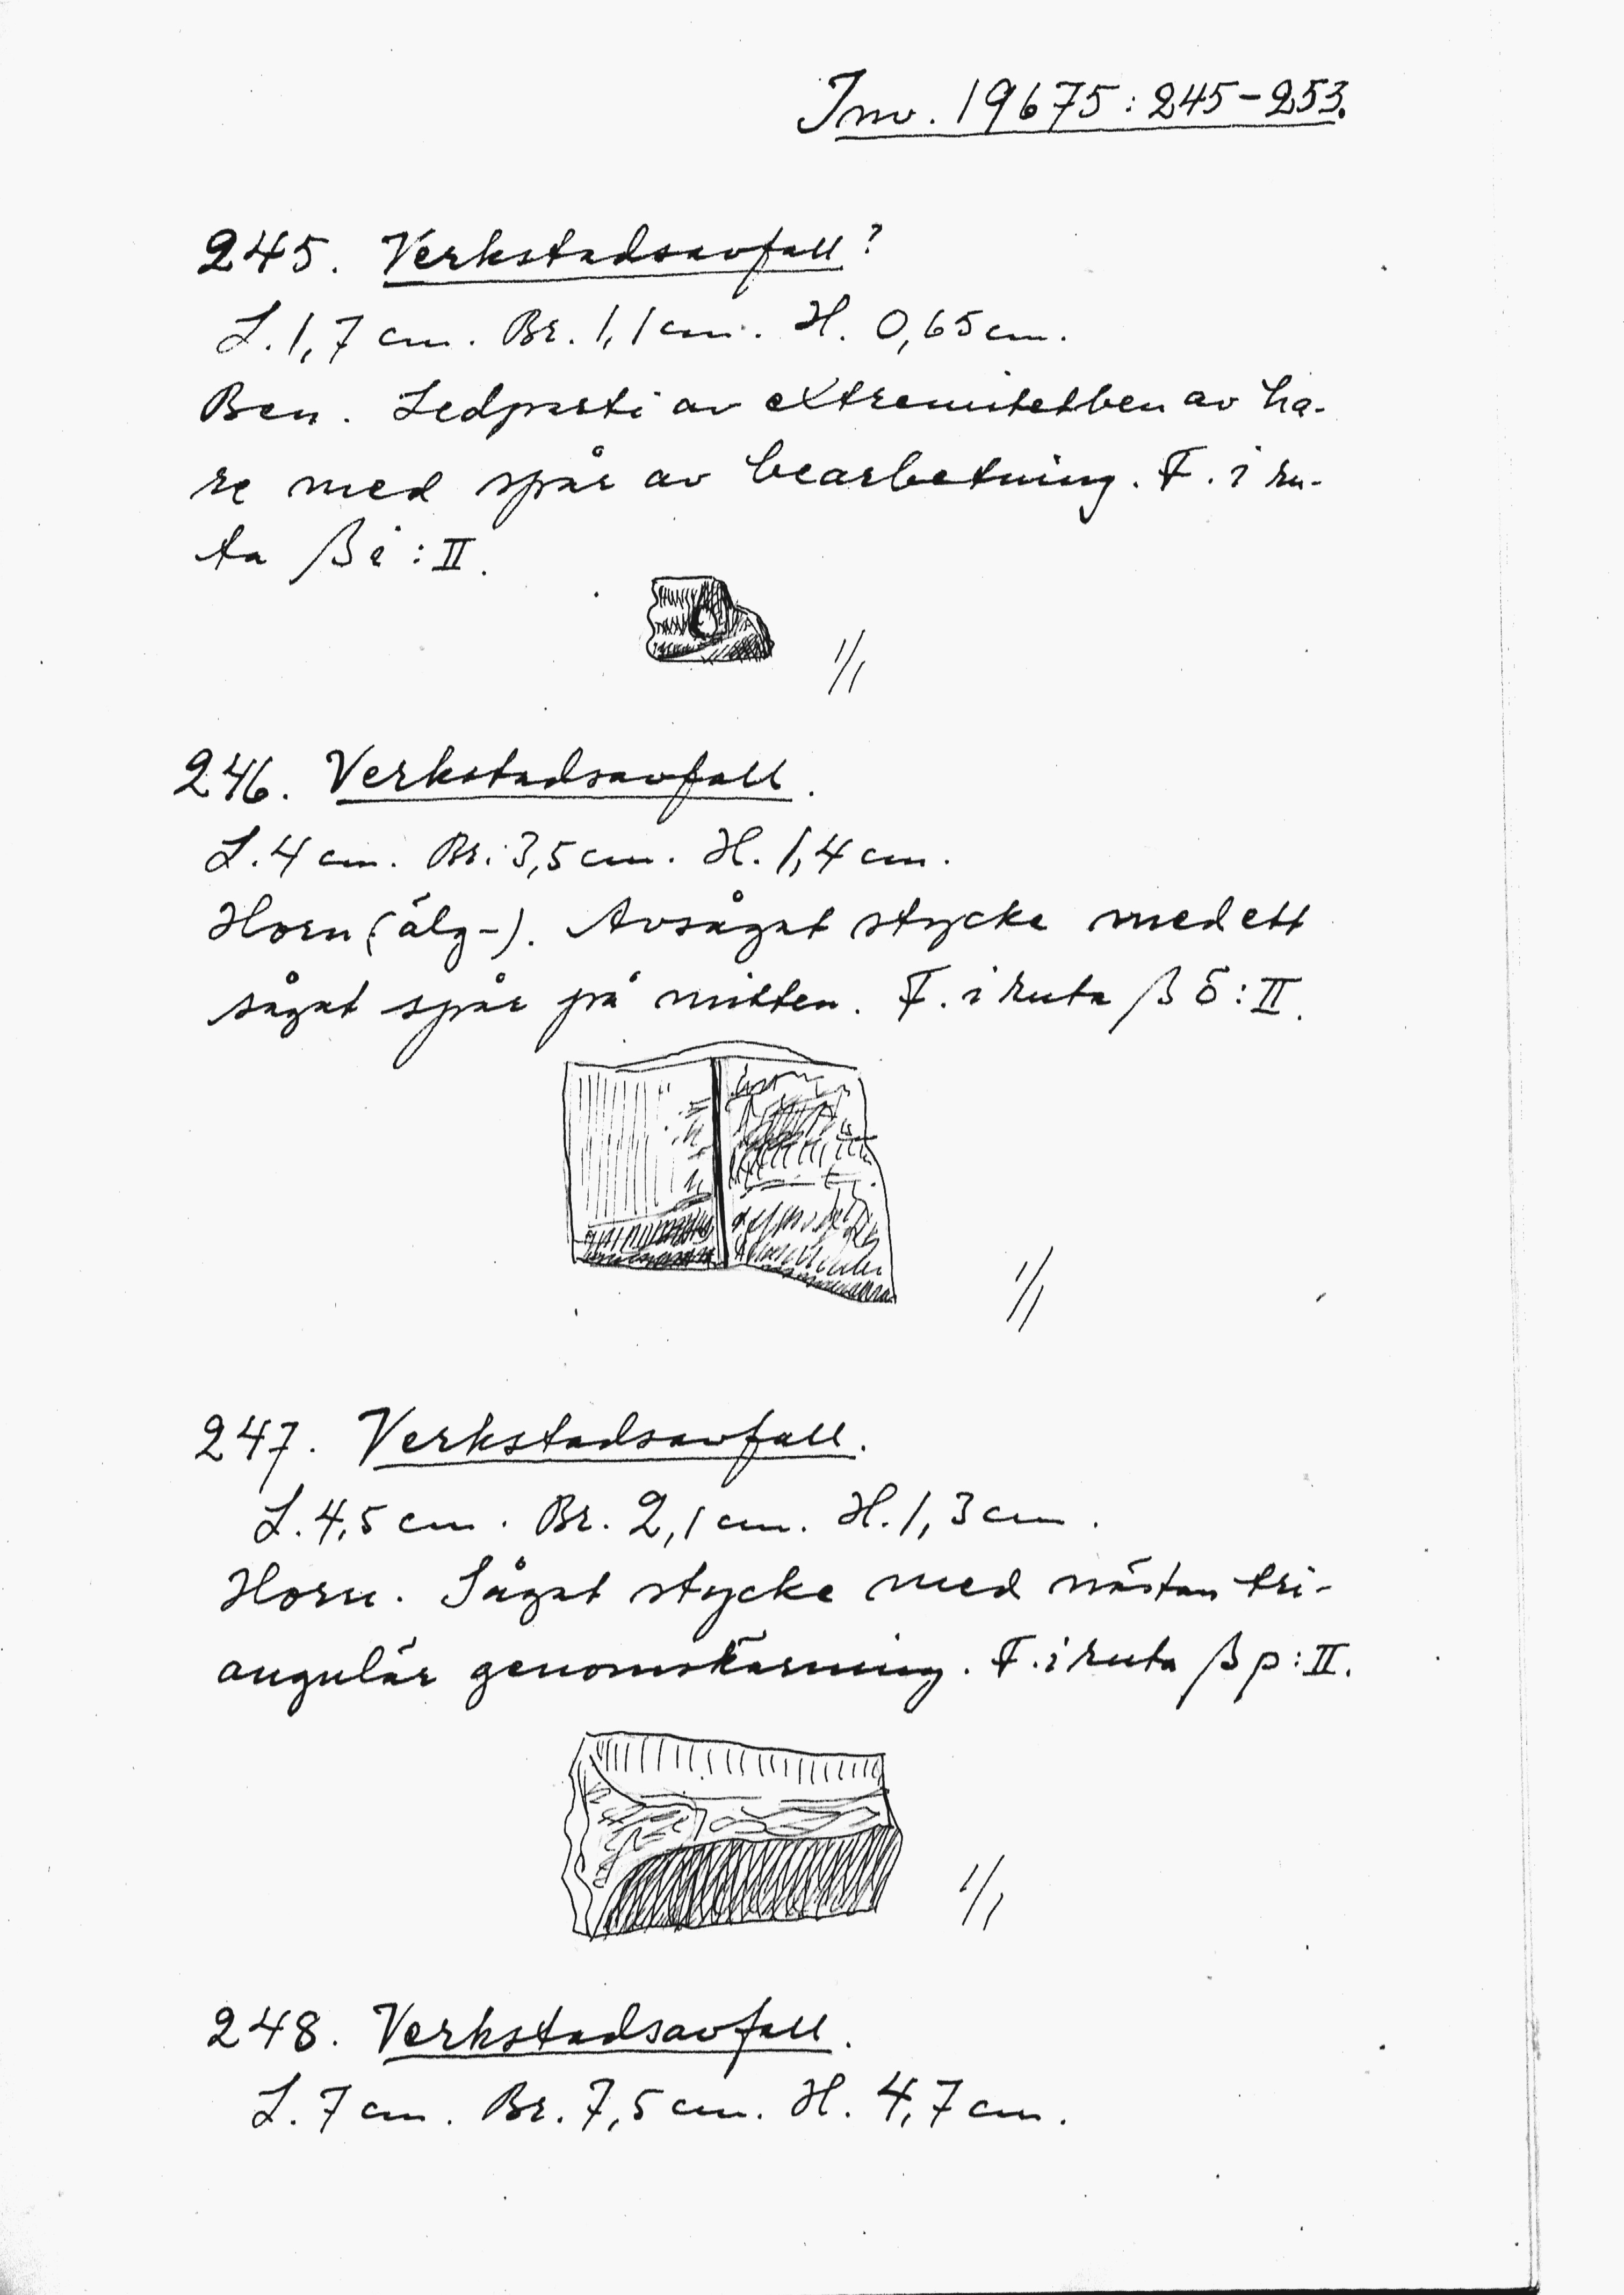 Inv. 19675:245-253.
245. Verkstadsavfall?
L. 1,7 cm. Br. 1,1 cm. H. 0,65 cm.
Ben. Ledparti av extremitetben av ha-
re med spår av bearbetning. F. i ru-
ta β i : II.
1/1
246. Verkstadsavfall.
L. 4 cm. Br. 3,5 cm. H. 1,4 cm.
Horn (älg-). Avsågat stycke med ett
sågat spår på mitten. F. i ruta β δ : II.
1/1
247. Verkstadsavfall.
L. 4,5 cm. Br. 2,1 cm. H. 1,3 cm.
Horn. Sågat stycke med nästan tri-
angulär genomskärning. F. i ruta β p : II.
1/1
248. Verkstadsavfall.
L. 7 cm. Br. 7,5 cm. H. 4,7 cm.